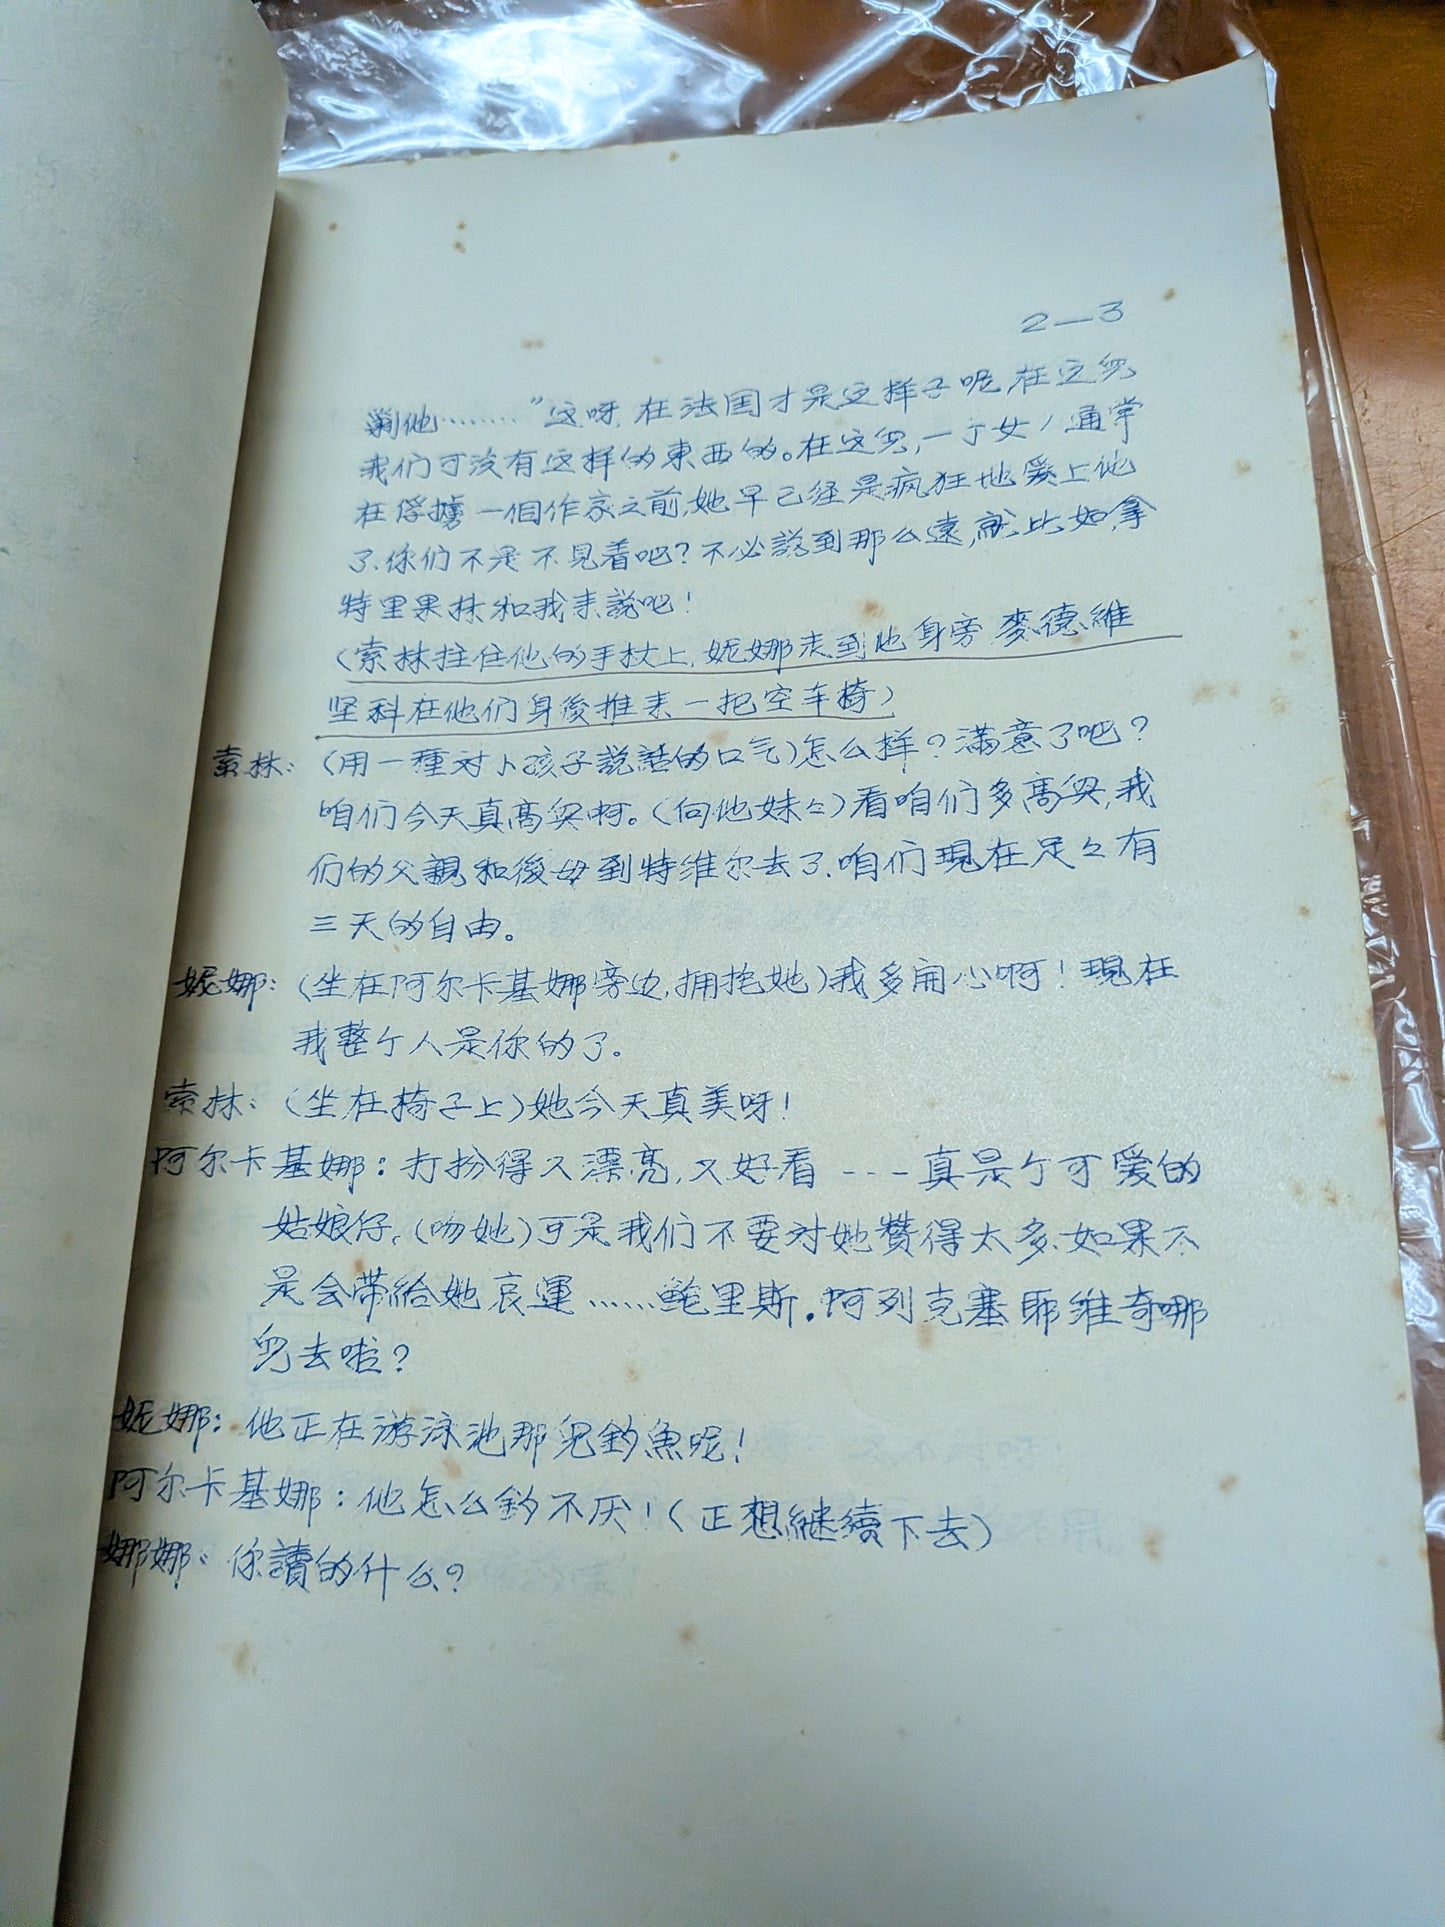 2—3
他………"这呀,在法国才是这样子呢,在这兒
我们可没有这样的東西的。在这兒,一个女人通常
在俘擄一個作家之前,她早已经是疯狂地爱上他
了.你们不是不見着吧?不必説到那么遠,就比如,拿
特里果林和我来說吧!
(索林拄住他的手杖上,妮娜走到他身旁,麥德維
坚科在他们身後推来一把空车椅)
索林:(用一種对小孩子説話的口气)怎么样?滿意了吧?
咱们今天真高兴啊。(向他妹々)看咱们多高兴,我
们的父親和後母到特维尔去了.咱们現在足々有
三天的自由。
妮娜:(坐在阿尔卡基娜旁边,拥抱她)我多開心啊!現在
我整个人是你的了。
索林:(坐在椅子上)她今天真美呀!
阿尔卡基娜:打扮得又漂亮,又好看---真是个可爱的
姑娘仔,(吻她)可是我们不要对她贊得太多.如果不
是会带給她哀運……鲍里斯.阿列克塞耶维奇哪
兒去啦?
妮娜:他正在游泳池那兒釣魚呢!
阿尔卡基娜:他怎么釣不厌!(正想継續下去)
娜娜:你讀的什么?